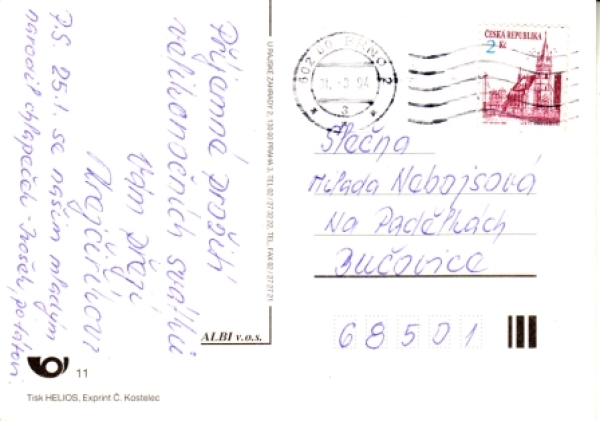 Příjemné prožití
velikonočních svátků
Vám přejí
P.S. 25.1. se našim mladým
narodil chlapeček -
U RAJSKÉ ZAHRADY 2, 130 00 PRAHA 3, TEL.02/27 32 22, TEL., FAX 02/27 27 21
ALBI v.o.s.
11
Tisk HELIOS, Exprint Č. Kostelec
602 00 BRNO 2
3
ČESKÁ REPUBLIKA
2 Kč
Slečna
Milada Nebojsová
Na Padělkách
Bučovice
68501